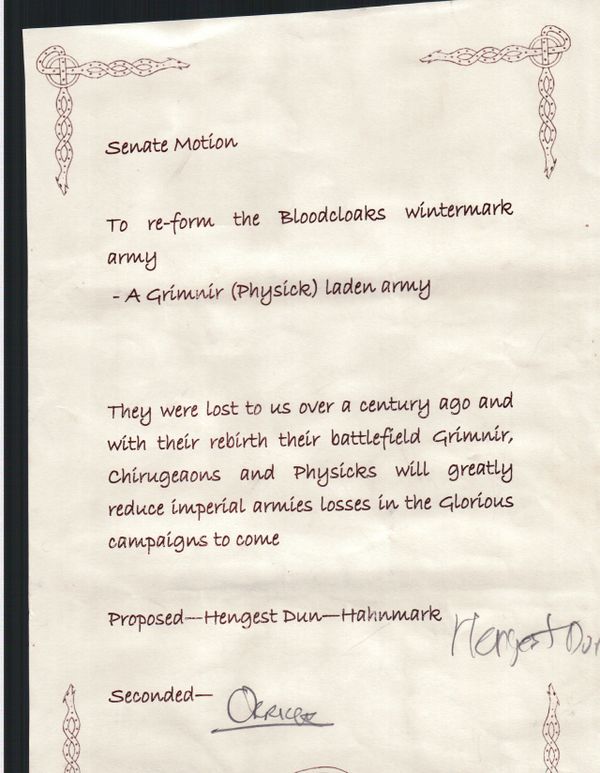 Senate Motion
To re-form the Bloodcloaks wintermark
army
- A Grimnir (Physick) laden army
They were lost to us over a century ago and
with their rebirth their battlefield Grimnir,
Chirugeaons and Physicks will greatly
reduce imperial armies losses in the Glorious
campaigns to come
Proposed—Hengest Dun—Hahnmark Hengest Dun
Seconded—